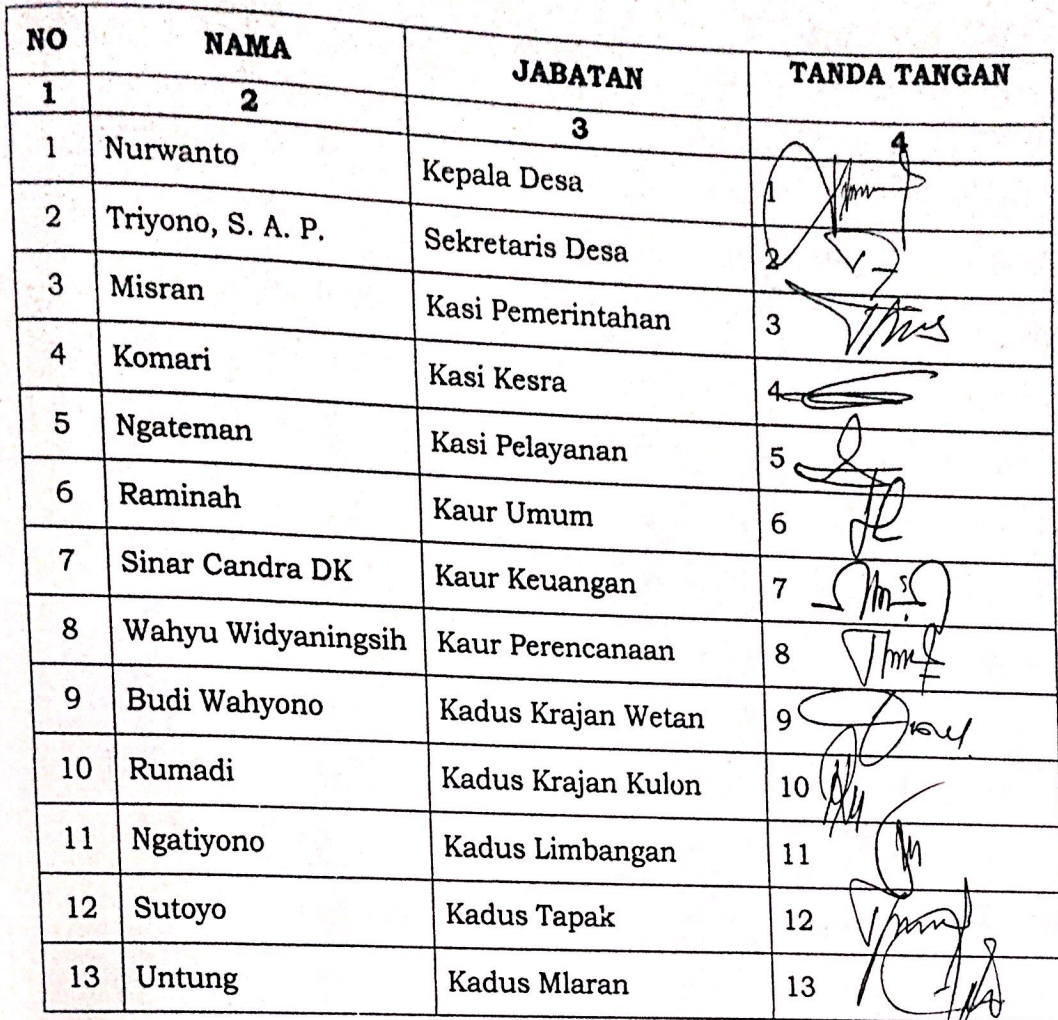 NO NAMA JABATAN TANDA TANGAN
1 2 3 4
1 Nurwanto Kepala Desa 1
2 Triyono, S. A. P. Sekretaris Desa 2
3 Misran Kasi Pemerintahan 3
4 Komari Kasi Kesra 4
5 Ngateman Kasi Pelayanan 5
6 Raminah Kaur Umum 6
7 Sinar Candra DK Kaur Keuangan 7
8 Wahyu Widyaningsih Kaur Perencanaan 8
9 Budi Wahyono Kadus Krajan Wetan 9
10 Rumadi Kadus Krajan Kulon 10
11 Ngatiyono Kadus Limbangan 11
12 Sutoyo Kadus Tapak 12
13 Untung Kadus Mlaran 13